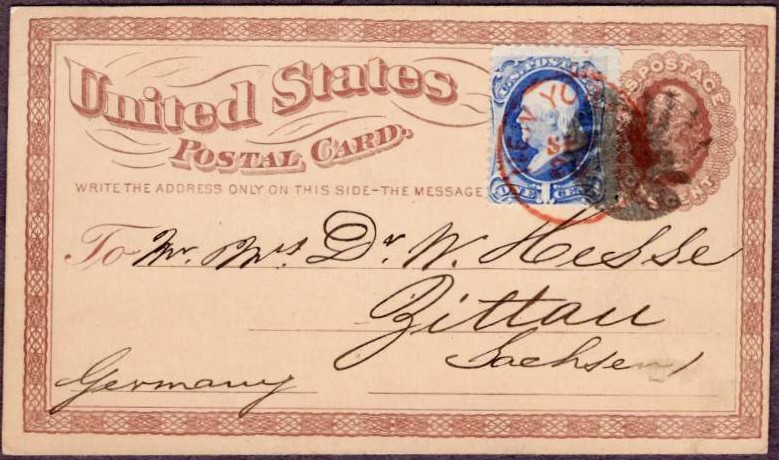 United States
POSTAL CARD.
WRITE THE ADDRESS ONLY ON THIS SIDE-THE MESSAGE
U.S. POSTAGE
ONE CENT
NEW YO
S. POSTAGE
CENT
To Mr. Mrs Dr. W. Hesse
Zittau
Sachsen
Germany